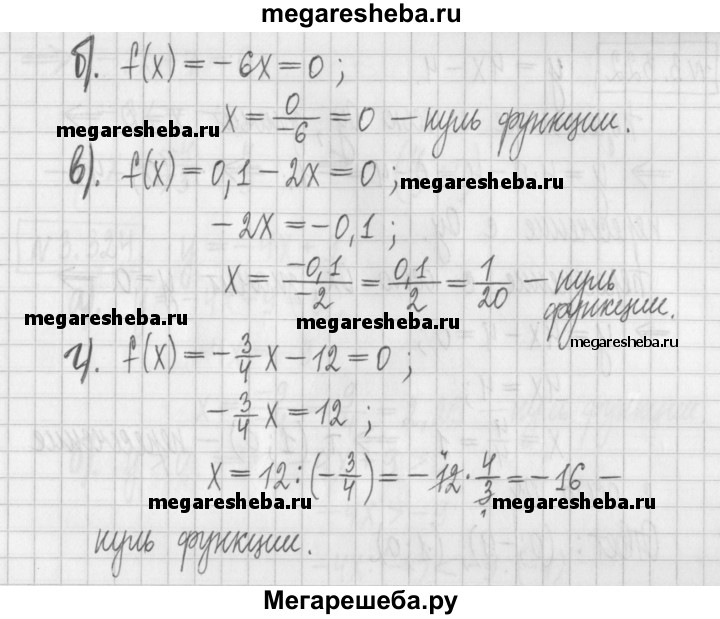 megaresheba.ru
б). f(x) = -6x = 0 ;
x = 0/-6 = 0 — нуль функции.
megaresheba.ru
в). f(x) = 0,1 - 2x = 0 ;
megaresheba.ru
-2x = -0,1 ;
x = -0,1/-2 = 0,1/2 = 1/20 — нуль
функции.
megaresheba.ru
megaresheba.ru
megaresheba.ru
г). f(x) = -3/4 x - 12 = 0 ;
-3/4 x = 12 ;
x = 12 : (-3/4) = -12 · 4/3 = -16 —
megaresheba.ru
megaresheba.ru
нуль функции.
Мегарешеба.ру